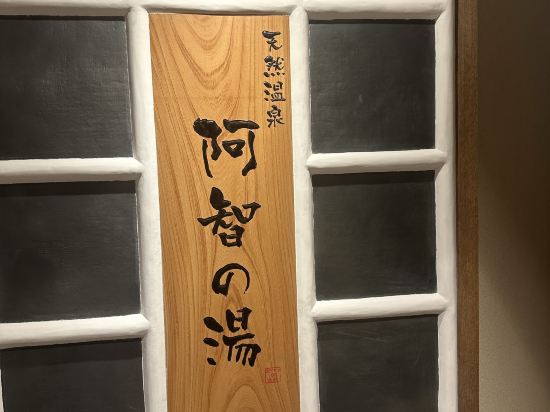 天然温泉
阿智の湯